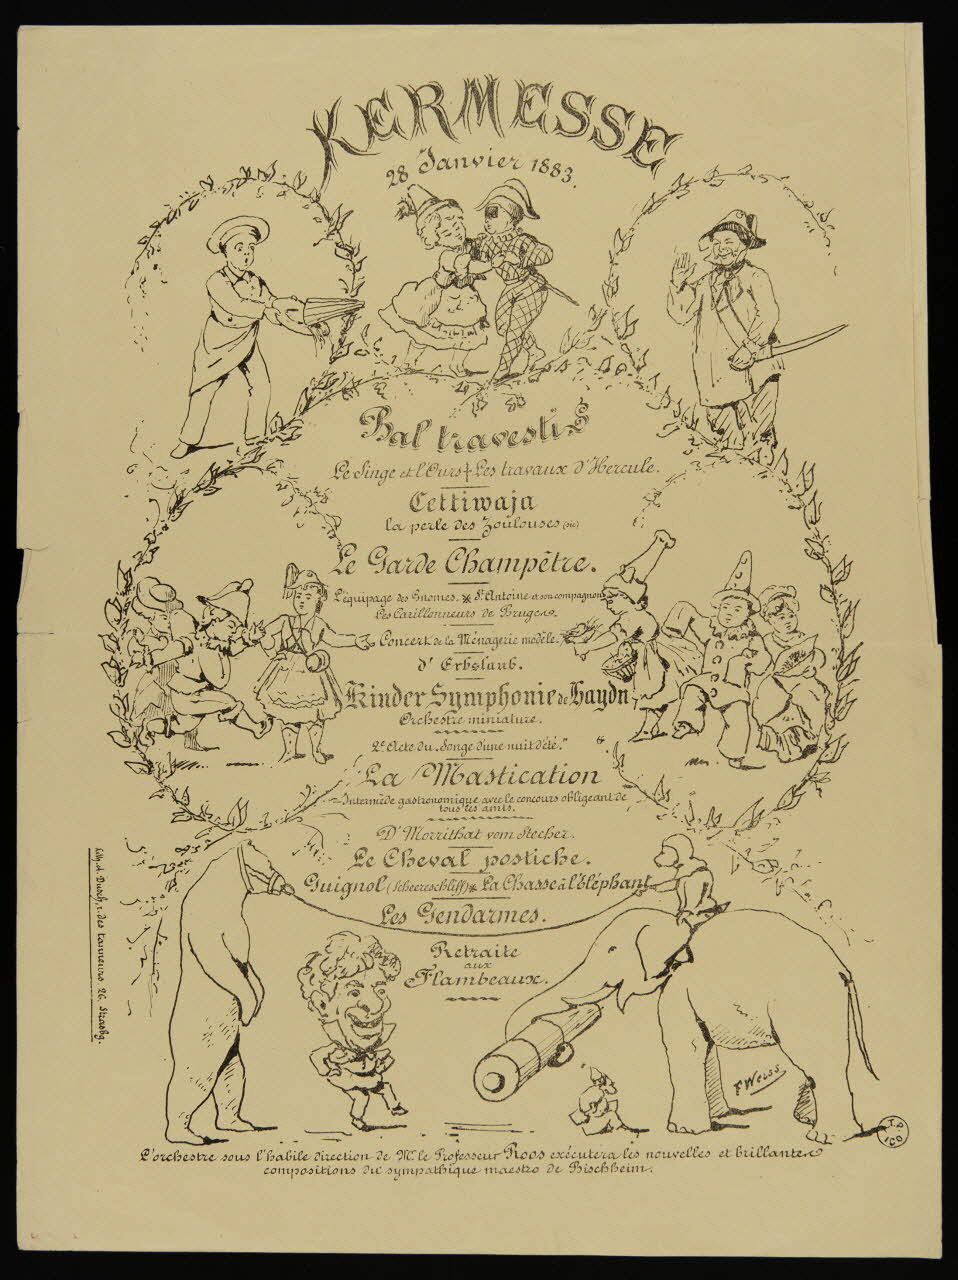 KERMESSE
28 Janvier 1883.
Bal travesti
Le Singe et l'Ours † Les travaux d'Hercule.
Cettiwaja
la perle des Zoulouses (sic)
Le Garde Champêtre.
L'équipage des Gnomes. ※ St Antoine et son compagnon
Les Carillonneurs de Bruges.
Concert de la Ménagerie modèle.
D' Erbslaub.
Kinder Symphonie de Haydn
Orchestre miniature.
2e Acte du „Songe d'une nuit d'été."
La Mastication
Intermède gastronomique avec le concours obligeant de
tous les amis.
D' Morrithat vom Stecher.
Le Cheval postiche.
Guignol (Scheereschliff) ※ La Chasse à l'Éléphant
Les Gendarmes.
Retraite
aux
Flambeaux.
F Weiss
L'orchestre sous l'habile direction de Mr. le Professeur Roos exécutera les nouvelles et brillantes
compositions du sympathique maestro de Bischheim.
des tanneurs 26. Strasbg.